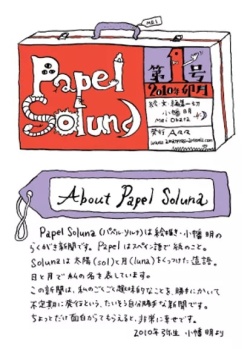 mei
Papel
Soluna
第1号
2010年卯月
絵・文・編集一切
小幡 明
Mei Obata
発行
About Papel Soluna
Papel Soluna (パペル・ソルナ)は絵描き・小幡明の
らくがき新聞です。Papelはスペイン語で紙のこと。
Solunaは太陽(sol)と月(luna)をくっつけた造語。
日と月で私の名を表しています。
この新聞は、私のごくごく趣味的なことを、勝手にかいて
不定期に発行という、たいそう自分勝手な新聞です。
ちょっとだけ面白がってもらえると、非常に幸せです。
2010年弥生 小幡明より